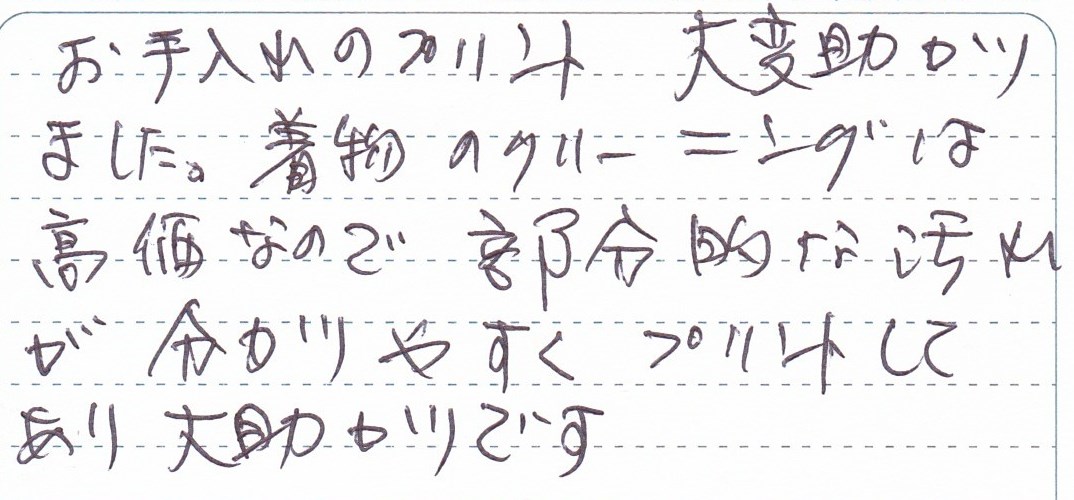 お手入れのプリント 大変助かり
ました。着物のクリーニングは
高価なので 部分的な汚れ
が 分かりやすく プリントして
あり 大助かりです